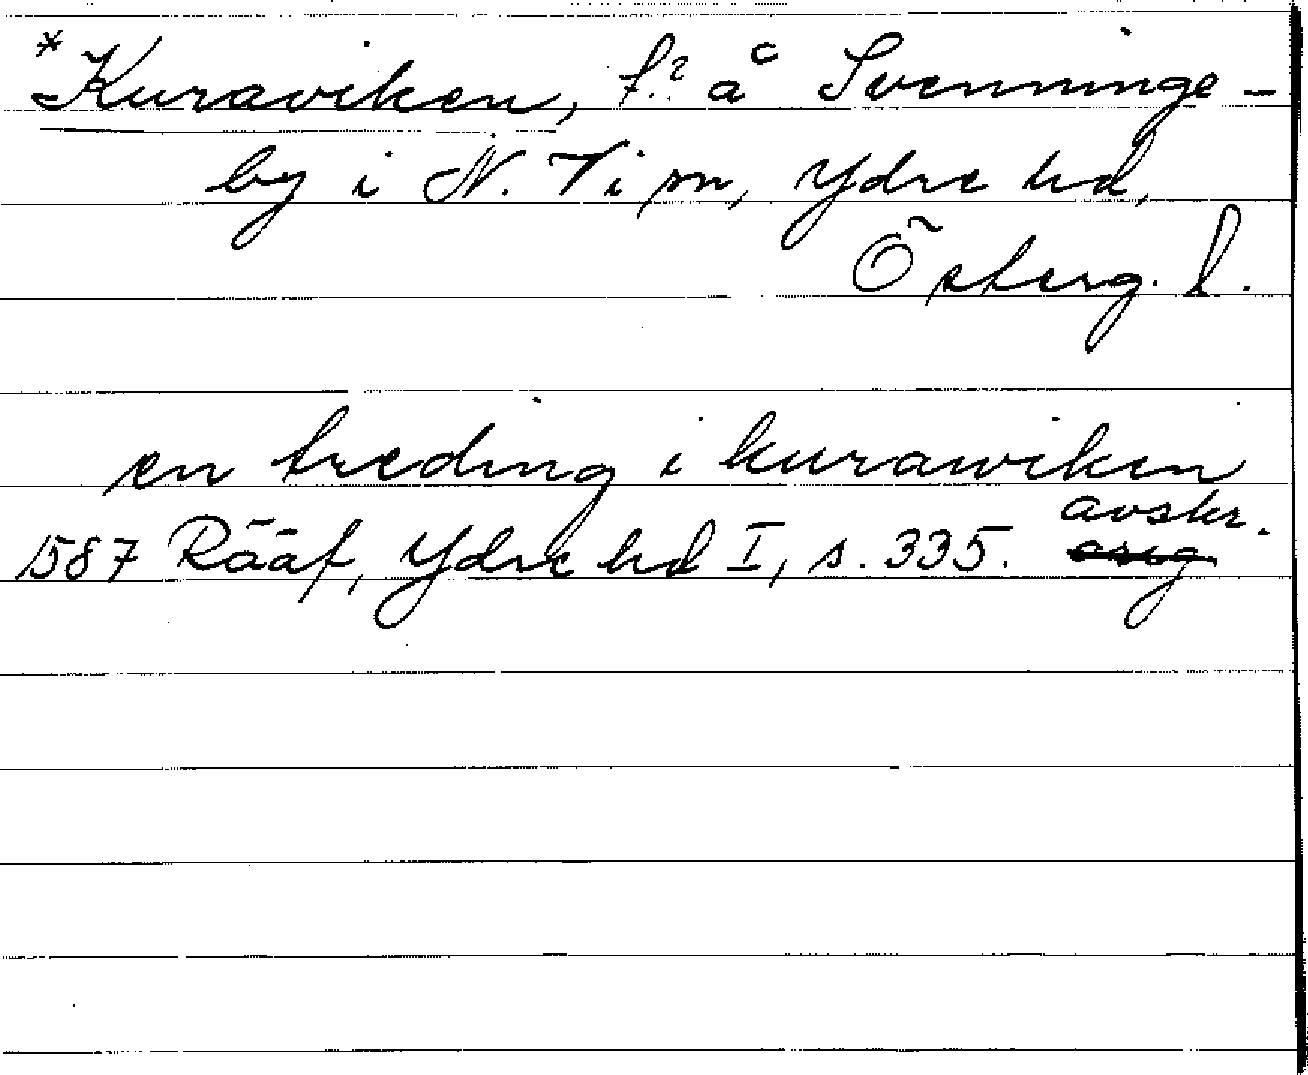 *Kuraviken, f.? å Svenninge-
by i N. Vi sn, Ydre hd,
Österg. l.
en treding i kurawiken
1587 Rääf, Ydre hd I, s. 335. avskr.